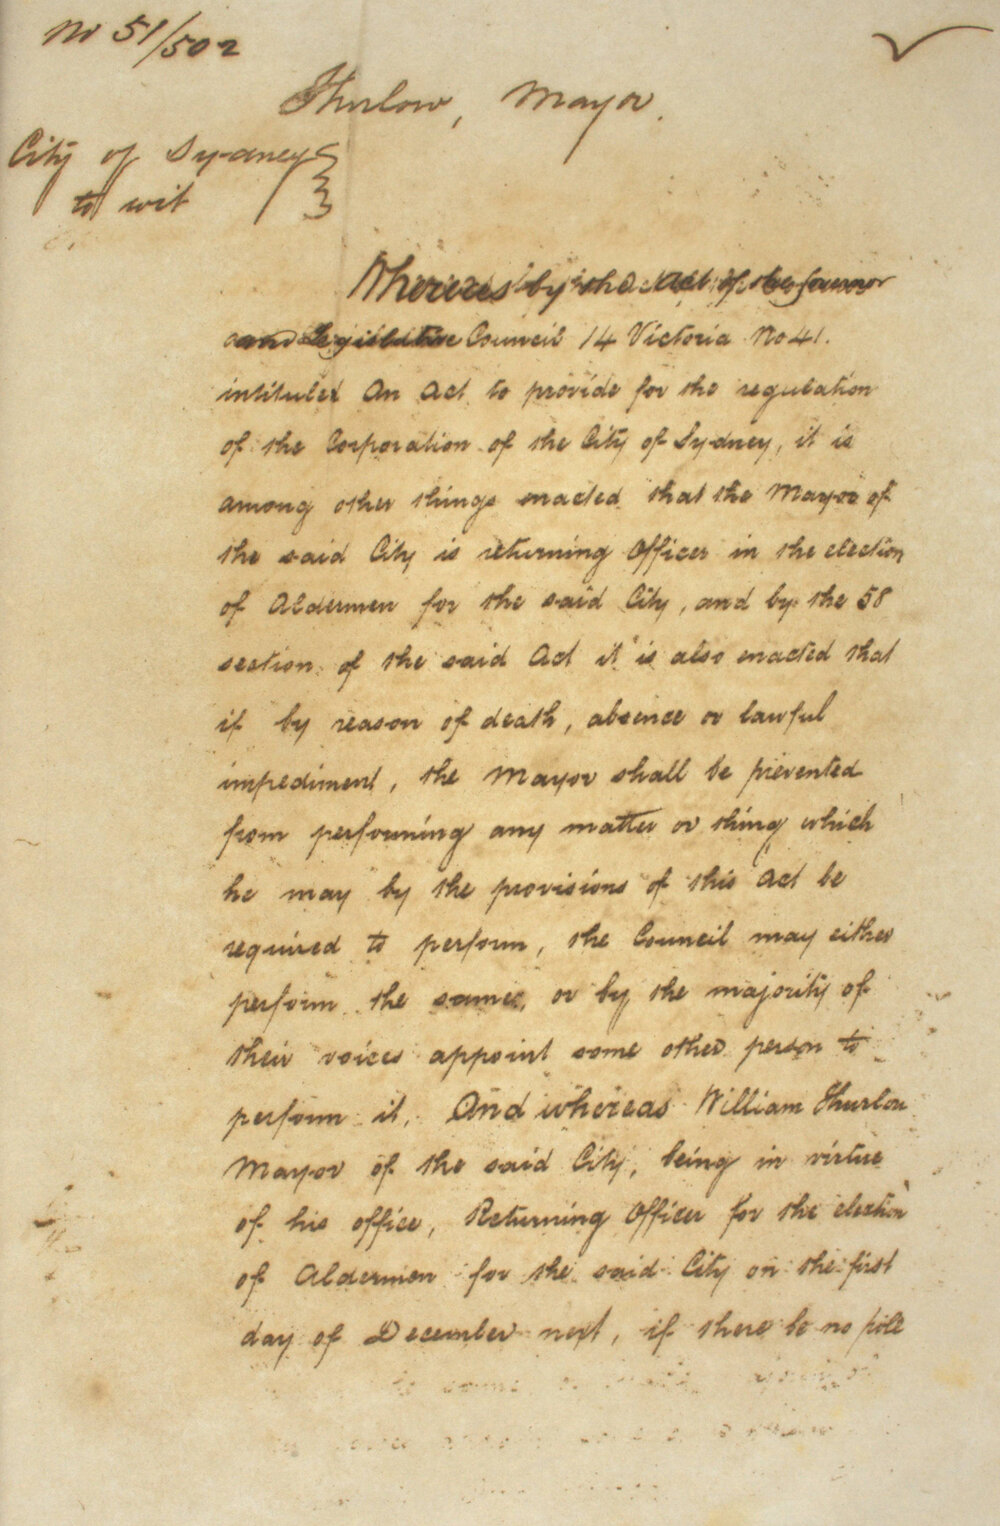 No 51/502
Thurlow, Mayor.
City of Sydney
to wit
Whereas by the Act of the Governor
and Legislative Council 14 Victoria No 41.
intituled An Act to provide for the regulation
of the Corporation of the City of Sydney, it is
among other things enacted that the Mayor of
the said City is returning Officer in the election
of Aldermen for the said City, and by the 58
section of the said Act it is also enacted that
if by reason of death, absence or lawful
impediment, the Mayor shall be prevented
from performing any matter or thing which
he may by the provisions of this Act be
required to perform, the Council may either
perform the same, or by the majority of
their voices appoint some other person to
perform it. And whereas William Thurlow
Mayor of the said City, being in virtue
of his office, Returning Officer for the election
of Aldermen for the said City on the first
day of December next, if there be no pole